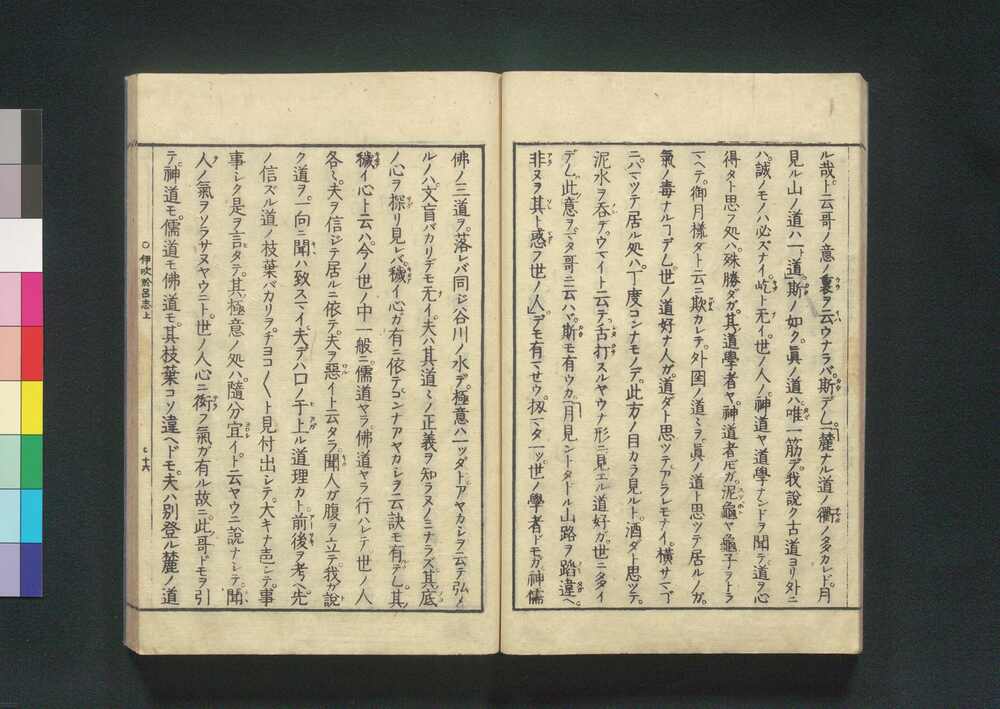 ル哉ト云哥ノ意ノ裏ヲ云ウナラバ斯デ厶「麓ナル道ノ衢ノ多カレド月
見ル山ノ道ハ一ト道」斯ノ如ク眞ノ道ハ唯一筋デ我說ク古道ヨリ外ニ
ハ誠ノモノハ必ズナイ屹ト无イ世ノ人ノ神道ヤ道學ナンドヲ聞テ道ヲ心
得タト思フ処ハ殊勝ダガ其道學者ヤ神道者𪜈ガ泥龜ヤ龜子ヲトラ
マヘテ御月樣ダト云ニ欺カレテ外国ノ道ミヲ眞ノ道ト思ツテ居ルノガ
氣ノ毒ナルヿデ厶世ノ道好ナ人ガ道ダト思ツテアラレモナイ橫サマヿ
ニハマツテ居ル処ハ丁度コンナモノデ此方ノ目カラ見ルト酒ダト思ツテ
泥水ヲ呑デウマイト云テ舌打スルヤウナ形ニ見エル道好ガ世ニ多イ
デ厶此意ヲマタ哥ニ云ハヾ斯モ有ウカ「月見ントタドル山路ヲ蹈違ヘ
非ヌヲ其ト惑フ世ノ人」デモ有マセウ扨マタ一ッ世ノ學者ドモガ神儒
佛ノ三道ヲ落レバ同ジ谷川ノ水デ極意ハ一ッダトアヤカシヲ云テ弘メ
ルノハ文盲バカリデモ无イ夫ハ其道ミノ正義ヲ知ラヌノミナラズ其底
ノ心ヲ探リ見レバ穢イ心ガ有ニ依テコンナアヤカシヲ云訣モ有デ厶其
穢イ心ト云ハ今ノ世ノ中一般ニ儒道ヤラ佛道ヤラ行ハレテ世ノ人
各ミ夫ヲ信ジテ居ルニ依テ夫ヲ惡イト云タラ聞人ガ腹ヲ立テ我ガ說
ク道ヲ一向ニ聞ハ致スマイ夫デハ口ノ干上ル道理カト前後ヲ考ヘ先
ノ信ズル道ノ枝葉バカリヲチヨコ〱ト見付出シテ大キナ声シテ事
事シク是ヲ言タテ其極意ノ処ハ隨分宜イト云ヤウニ說ナシテ聞
人ノ氣ヲソラサヌヤウニト世ノ人心ニ衒フ氣ガ有ル故ニ此哥ドモヲ引
テ神道モ儒道モ佛道モ其枝葉コソ違ヘドモ夫ハ別登ル麓ノ道
○伊吹於呂志上
十六